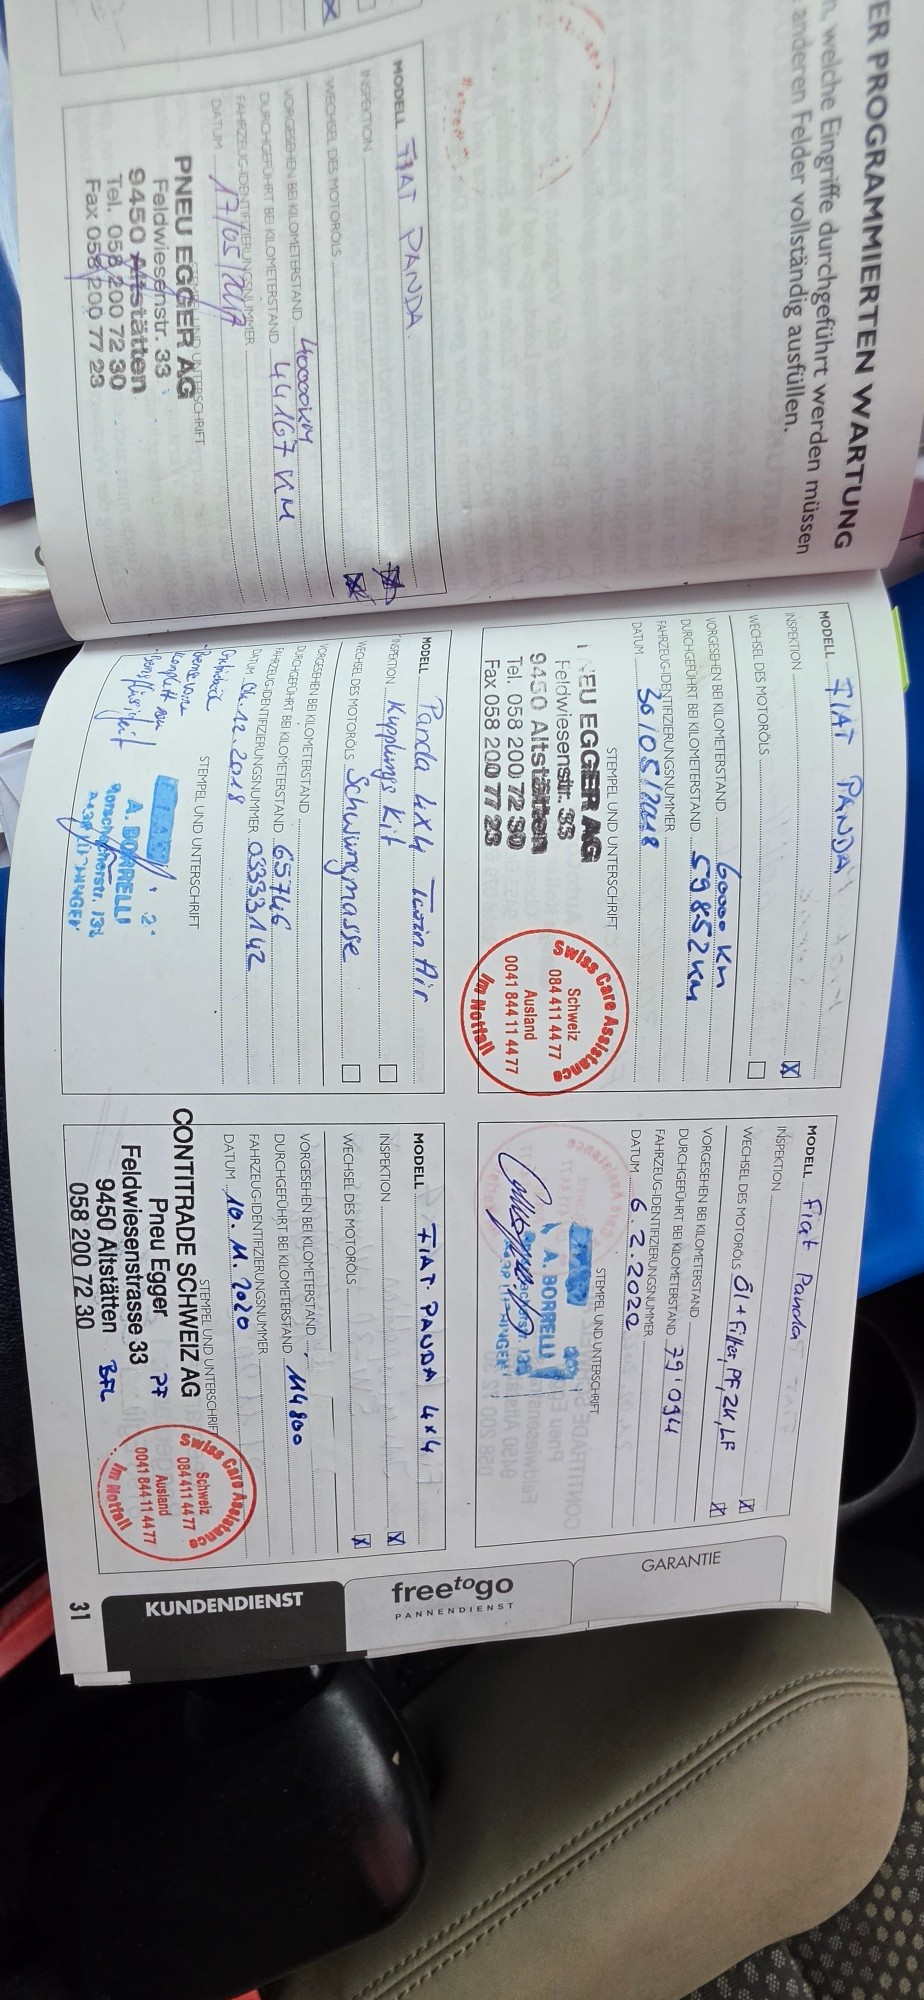 ER PROGRAMMIERTEN WARTUNG
n, welche Eingriffe durchgeführt werden müssen
anderen Felder vollständig ausfüllen.
MODELL FIAT PANDA
INSPEKTION
WECHSEL DES MOTORÖLS
VORGESEHEN BEI KILOMETERSTAND 40000KM
DURCHGEFÜHRT BEI KILOMETERSTAND 44167 KM
FAHRZEUG-IDENTIFIZIERUNGSNUMMER
DATUM 17/05/2017
UND UNTERSCHRIFT
PNEU EGGER AG
Feldwiesenstr. 33
9450 Altstätten
Tel. 058 200 72 30
Fax 058 200 77 23
MODELL FIAT PANDA
INSPEKTION
WECHSEL DES MOTORÖLS
VORGESEHEN BEI KILOMETERSTAND 60000 KM
DURCHGEFÜHRT BEI KILOMETERSTAND 59852 KM
FAHRZEUG-IDENTIFIZIERUNGSNUMMER
DATUM 30/05/2018
STEMPEL UND UNTERSCHRIFT
NEU EGGER AG
Feldwiesenstr. 33
9450 Altstätten
Tel. 058 200 72 30
Fax 058 200 77 23
Swiss Care Assistance
Schweiz
084 411 44 77
Ausland
0041 844 11 44 77
Im Notfall
MODELL Fiat Panda
INSPEKTION
WECHSEL DES MOTORÖLS Öl + Filter, PF, ZK, LF
VORGESEHEN BEI KILOMETERSTAND
DURCHGEFÜHRT BEI KILOMETERSTAND 79'094
FAHRZEUG-IDENTIFIZIERUNGSNUMMER
DATUM 6.2.2020
STEMPEL UND UNTERSCHRIFT
A. BORRELLI
MODELL Panda 4x4 Twin Air
INSPEKTION Kupplungs Kit
WECHSEL DES MOTORÖLS Schwungmasse
VORGESEHEN BEI KILOMETERSTAND
DURCHGEFÜHRT BEI KILOMETERSTAND 65746
FAHRZEUG-IDENTIFIZIERUNGSNUMMER 03333142
DATUM 04.12.2018
STEMPEL UND UNTERSCHRIFT
A. BORRELLI
Rorschacherstr. 13
MODELL FIAT PANDA 4x4
INSPEKTION
WECHSEL DES MOTORÖLS
VORGESEHEN BEI KILOMETERSTAND
DURCHGEFÜHRT BEI KILOMETERSTAND 114800
FAHRZEUG-IDENTIFIZIERUNGSNUMMER
DATUM 10.11.2020
STEMPEL UND UNTERSCHRIFT
CONTITRADE SCHWEIZ AG
Pneu Egger
Feldwiesenstrasse 33
9450 Altstätten
058 200 72 30
Swiss Care Assistance
Schweiz
084 411 44 77
Ausland
0041 844 11 44 77
Im Notfall
GARANTIE
freetogo
PANNENDIENST
KUNDENDIENST
31